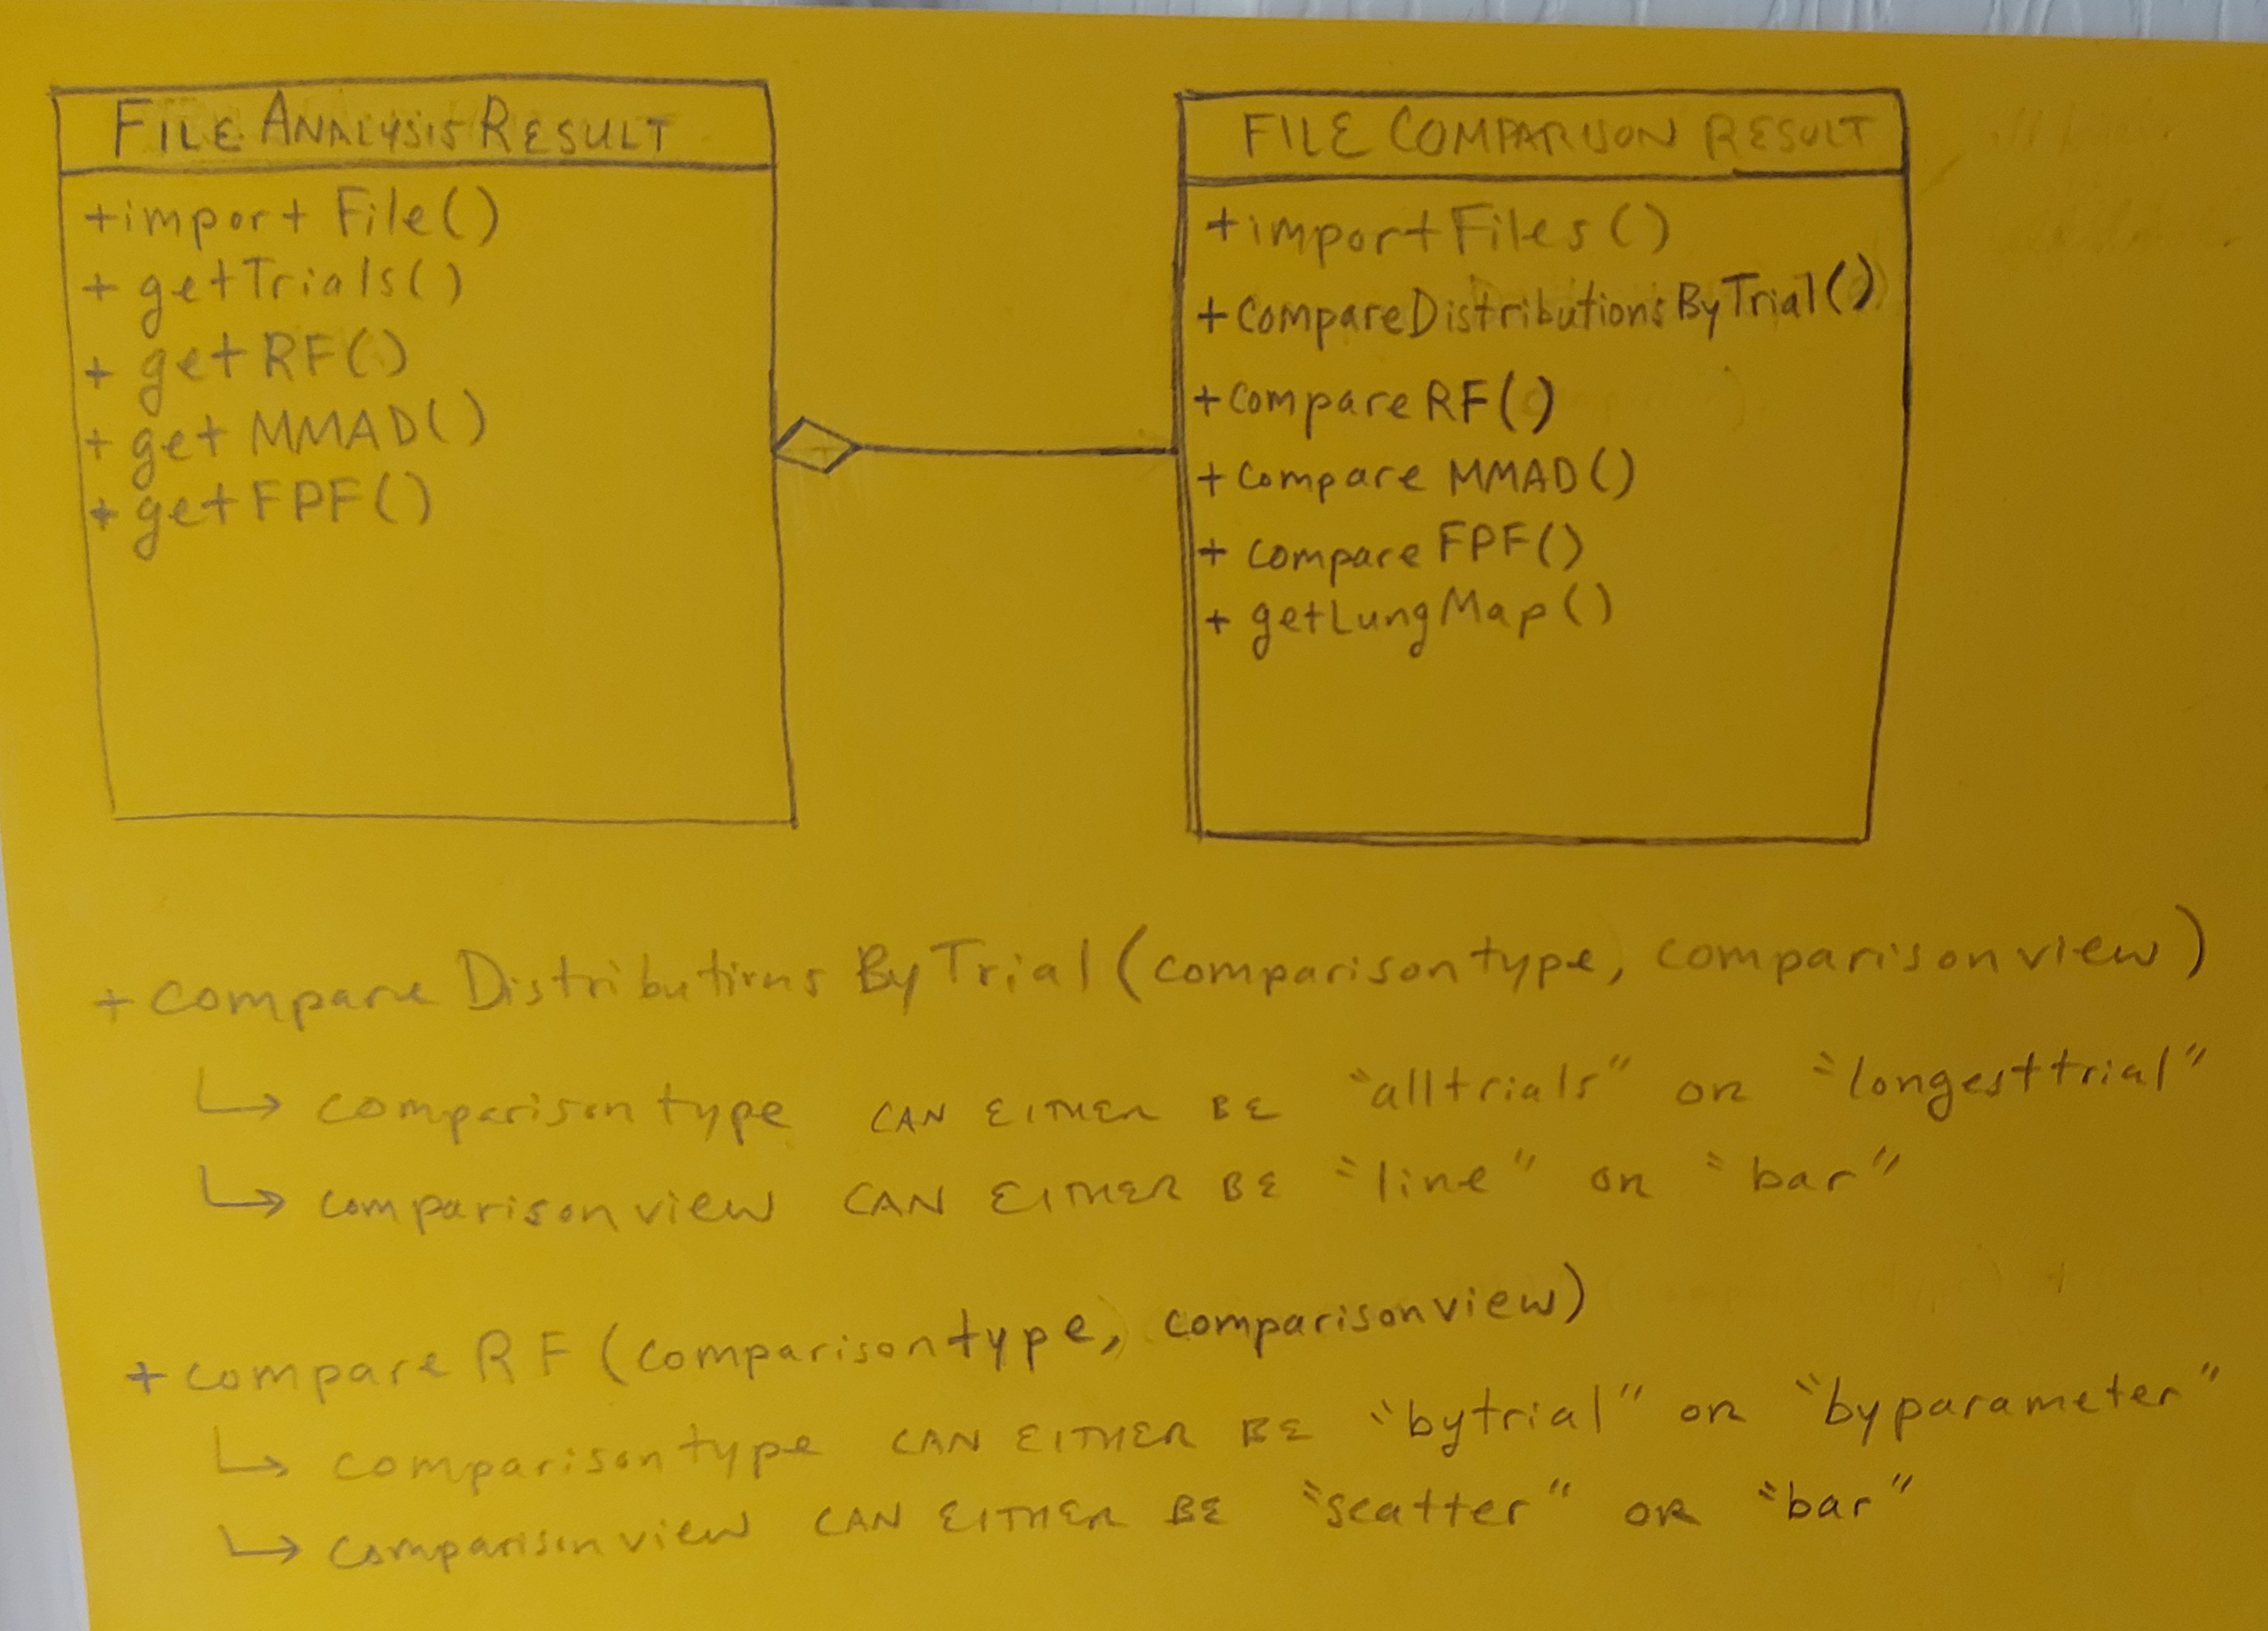 FILE ANALYSIS RESULT
+import File()
+ getTrials()
+ get RF()
+ get MMAD()
+ get FPF()
FILE COMPARISON RESULT
+importFiles()
+CompareDistributionsByTrial()
+Compare RF()
+ Compare MMAD()
+ Compare FPF()
+ getLungMap()
+ compare Distributions By Trial (comparisontype, comparisonview)
↳ comparisontype CAN EITHER BE "alltrials" OR "longesttrial"
↳ comparisonview CAN EITHER BE "line" OR "bar"
+ compare RF (comparisontype, comparisonview)
↳ comparisontype CAN EITHER BE "bytrial" OR "byparameter"
↳ comparisonview CAN EITHER BE "scatter" OR "bar"